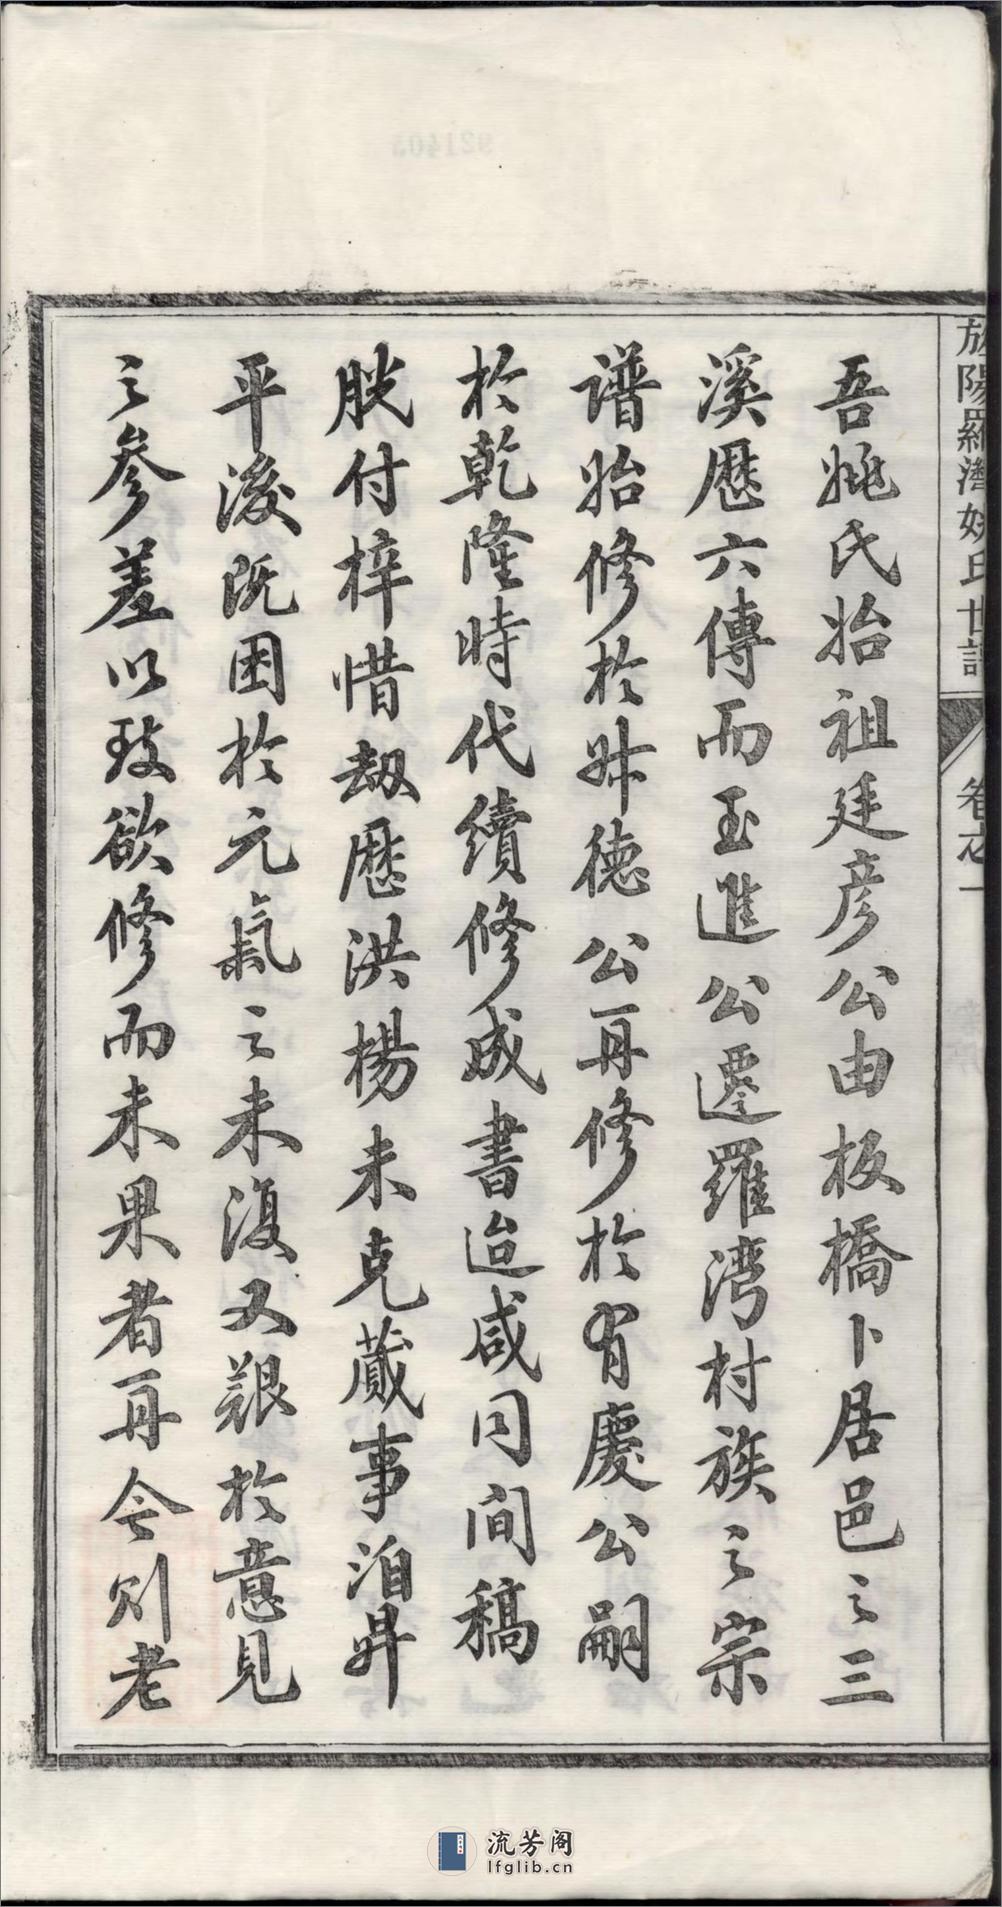 旌陽羅灣姚氏世譜
卷之一
吾姚氏始祖廷彦公由板橋卜居邑之三
溪歷六傳而玉進公遷羅湾村族之宗
谱始修於昇德公再修於有慶公嗣
於乾隆時代續修成書迨咸同間稿
脱付梓惜劫歷洪楊未克蕆事洎昇
平後既困於元氣之未復又艱於意見
之參差以致欲修而未果者再今则老
流芳阁
lfglib.cn